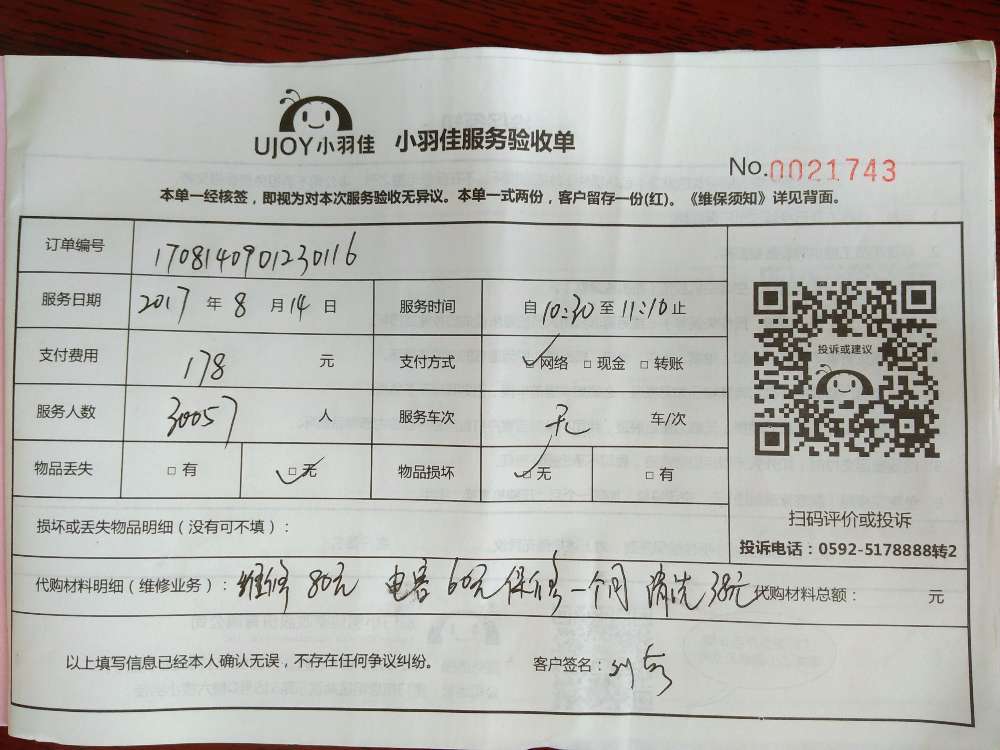 UJOY小羽佳 小羽佳服务验收单
No.0021743
本单一经核签，即视为对本次服务验收无异议。本单一式两份，客户留存一份(红)。《维保须知》详见背面。
订单编号 1708140901230116
服务日期 2017 年 8 月 14 日 服务时间 自 10:30 至 11:10 止
支付费用 178 元 支付方式 ☑网络 □现金 □转账
服务人数 30057 人 服务车次 无 车/次
物品丢失 □有 ☑无 物品损坏 ☑无 □有
投诉或建议
扫码评价或投诉
投诉电话：0592-5178888转2
损坏或丢失物品明细（没有可不填）：
代购材料明细（维修业务）：维修80元 电容60元 保修一个月 清洗38元 代购材料总额： 元
以上填写信息已经本人确认无误，不存在任何争议纠纷。 客户签名：刘